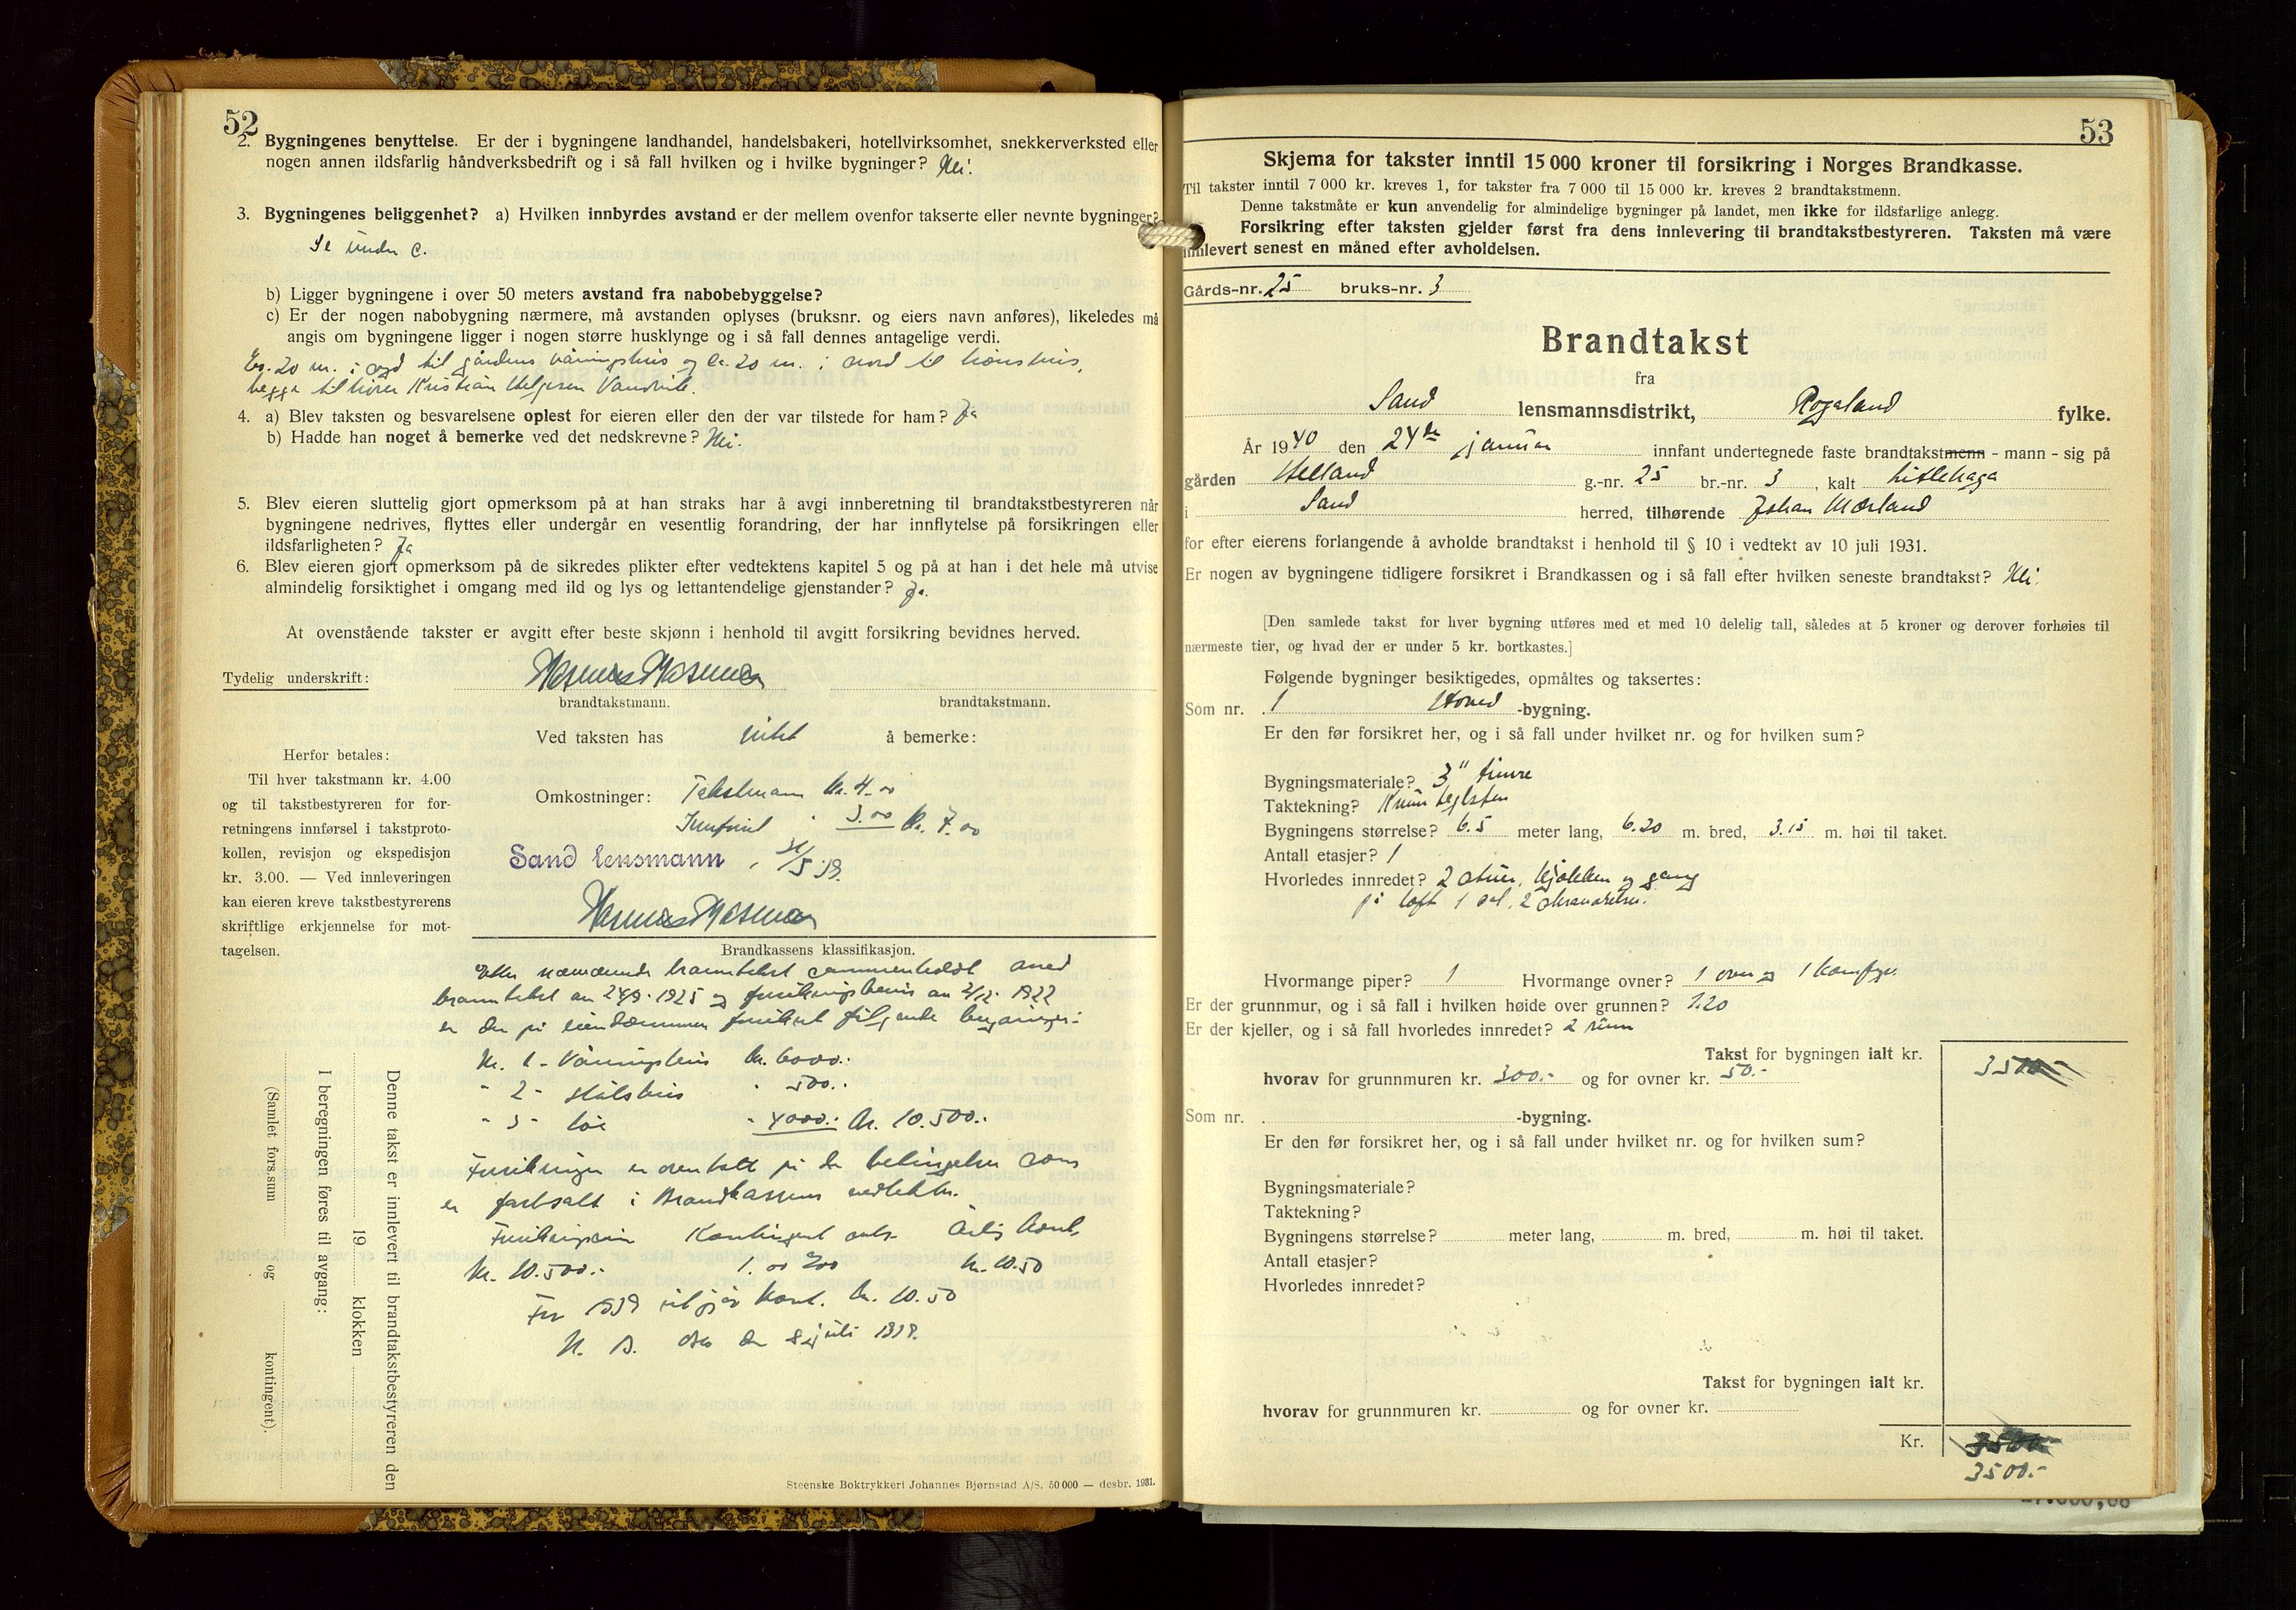 52
2. Bygningenes benyttelse. Er der i bygningene landhandel, handelsbakeri, hotellvirksomhet, snekkerverksted eller
nogen annen ildsfarlig håndverksbedrift og i så fall hvilken og i hvilke bygninger? Nei.
3. Bygningenes beliggenhet? a) Hvilken innbyrdes avstand er der mellem ovenfor takserte eller nevnte bygninger?
Se under c.
b) Ligger bygningene i over 50 meters avstand fra nabobebyggelse?
c) Er der nogen nabobygning nærmere, må avstanden oplyses (bruksnr. og eiers navn anføres), likeledes må
angis om bygningene ligger i nogen større husklynge og i så fall dennes antagelige verdi.
Ca. 20 m. i syd til gårdens våningshus og ca. 20 m. i nord til hønshus,
begge tilhører Kristian Helgesen Vandvik.
4. a) Blev taksten og besvarelsene oplest for eieren eller den der var tilstede for ham? Ja
b) Hadde han noget å bemerke ved det nedskrevne? Nei.
5. Blev eieren sluttelig gjort opmerksom på at han straks har å avgi innberetning til brandtakstbestyreren når
bygningene nedrives, flyttes eller undergår en vesentlig forandring, der har innflytelse på forsikringen eller
ildsfarligheten? Ja
6. Blev eieren gjort opmerksom på de sikredes plikter efter vedtektens kapitel 5 og på at han i det hele må utvise
almindelig forsiktighet i omgang med ild og lys og lettantendelige gjenstander? Ja.
At ovenstående takster er avgitt efter beste skjønn i henhold til avgitt forsikring bevidnes herved.
Tydelig underskrift: Rasmus Rasmussen
brandtakstmann. brandtakstmann.
Ved taksten has intet å bemerke:
Herfor betales:
Til hver takstmann kr. 4.00
og til takstbestyreren for for-
retningens innførsel i takstproto-
kollen, revisjon og ekspedisjon
kr. 3.00. — Ved innleveringen
kan eieren kreve takstbestyrerens
skriftlige erkjennelse for mot-
tagelsen.
Omkostninger: Takstmann kr. 4.00
Innførsel " 3.00 kr. 7.00
Sand lensmann, /5 39.
Rasmus Rasmussen
Brandkassens klassifikasjon.
Etter nærværende branntakst sammenholdt med
branntakst av 24/9 1925 og forsikringsbevis av 2/12 1922
er der på eiendommen forsikret følgende bygninger:
Nr. 1 - Våningshus kr. 6000.-
" 2 - stålshus " 500.-
" 3 - løe " 4000.- kr. 10.500.-
Forsikringen er overtatt på de betingelser som
er fastsatt i Brandkassens vedtekter.
Forsikringssum Kontingent Årlig kont.
kr. 10.500.- 1.00 ‰ kr. 10.50
For 1939 utgjør kont. kr. 10.50
N. B. Oslo den 8 juli 1939.
Denne takst er innlevert til brandtakstbestyreren den
19 klokken
I beregningen føres til avgang:
(Samlet fors.sum og kontingent).
Steenske Boktrykkeri Johannes Bjørnstad A/S. 50 000 — desbr. 1931.
53
Skjema for takster inntil 15 000 kroner til forsikring i Norges Brandkasse.
Til takster inntil 7 000 kr. kreves 1, for takster fra 7 000 til 15 000 kr. kreves 2 brandtakstmenn.
Denne takstmåte er kun anvendelig for almindelige bygninger på landet, men ikke for ildsfarlige anlegg.
Forsikring efter taksten gjelder først fra dens innlevering til brandtakstbestyreren. Taksten må være
innlevert senest en måned efter avholdelsen.
Gårds-nr. 25 bruks-nr. 3
Brandtakst
fra
Sand lensmannsdistrikt, Rogaland fylke.
År 1940 den 24de januar innfant undertegnede faste brandtakstmenn - mann - sig på
gården Helland g.-nr. 25 br.-nr. 3, kalt Litlehaga
i Sand herred, tilhørende Johan Mæland
for efter eierens forlangende å avholde brandtakst i henhold til § 10 i vedtekt av 10 juli 1931.
Er nogen av bygningene tidligere forsikret i Brandkassen og i så fall efter hvilken seneste brandtakst? Nei.
[Den samlede takst for hver bygning utføres med et med 10 delelig tall, således at 5 kroner og derover forhøies til
nærmeste tier, og hvad der er under 5 kr. bortkastes.]
Følgende bygninger besiktigedes, opmåltes og taksertes:
Som nr. 1 Hoved -bygning.
Er den før forsikret her, og i så fall under hvilket nr. og for hvilken sum?
Bygningsmateriale? 3" timre
Taktekning? Krum teglsten
Bygningens størrelse? 6.5 meter lang, 6.20 m. bred, 3.15 m. høi til taket.
Antall etasjer? 1
Hvorledes innredet? 2 stuer, kjøkken og gang
på loft 1 sal, 2 soveværelser.
Hvormange piper? 1 Hvormange ovner? 1 ovn og 1 komfyr.
Er der grunnmur, og i så fall i hvilken høide over grunnen? 1.20
Er der kjeller, og i så fall hvorledes innredet? 2 rum
Takst for bygningen ialt kr. 3500.-
hvorav for grunnmuren kr. 300.- og for ovner kr. 50.-
Som nr. -bygning.
Er den før forsikret her, og i så fall under hvilket nr. og for hvilken sum?
Bygningsmateriale?
Taktekning?
Bygningens størrelse? meter lang, m. bred, m. høi til taket.
Antall etasjer?
Hvorledes innredet?
Takst for bygningen ialt kr.
hvorav for grunnmuren kr. og for ovner kr.
Kr. 3500.-
3500.-